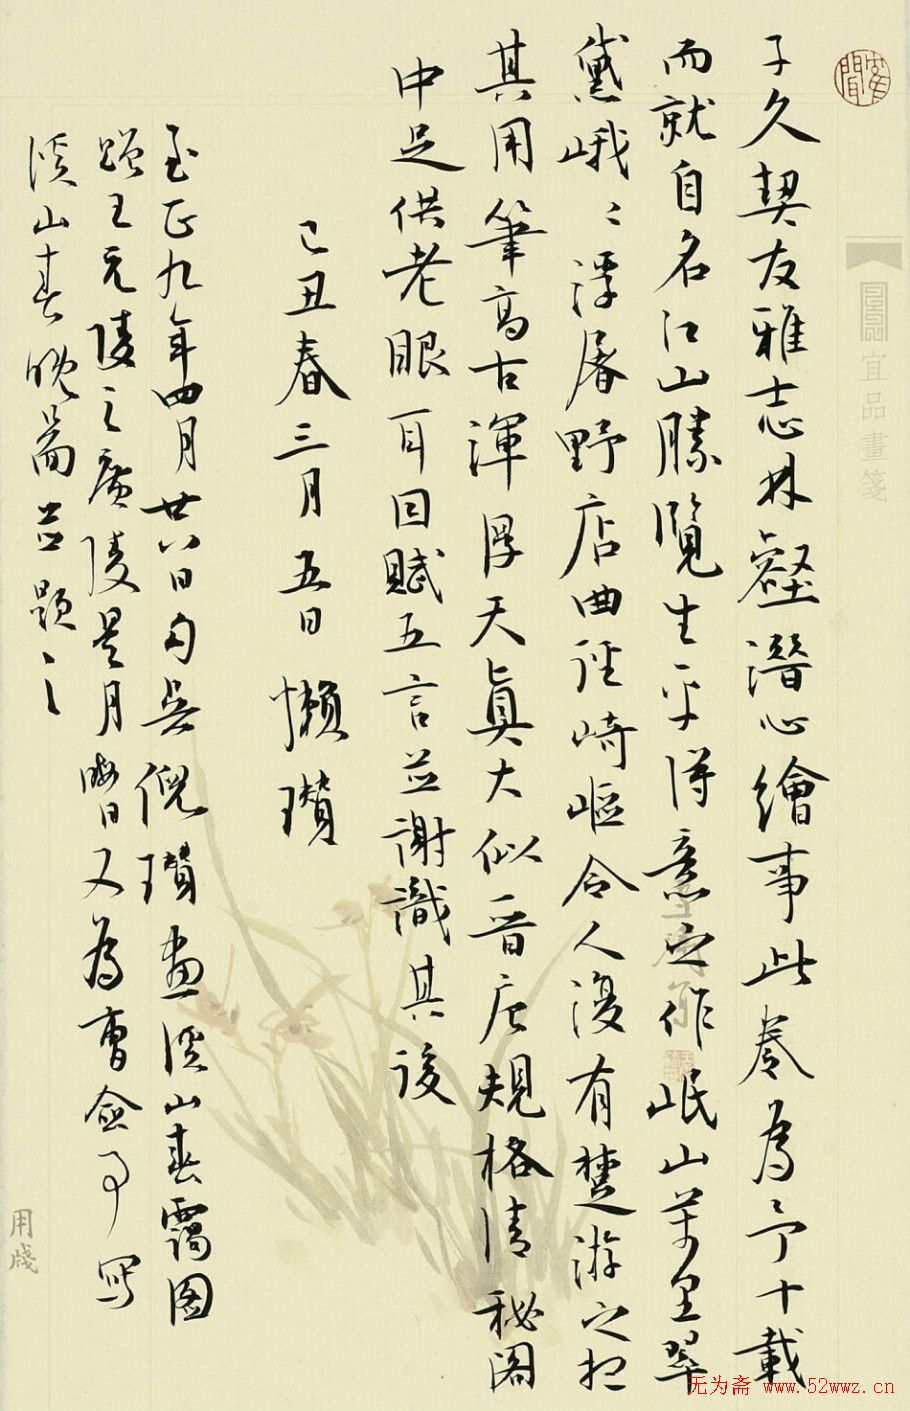 子久契友雅志林壑潛心繪事此卷為予十載
而就自名江山勝覽生平得意之作岷山萬里翠
黛峨〻浮屠野店曲徑崎嶇令人渙有楚游之想
其用筆高古渾厚天真大似晉唐規格清秘閣
中足供老眼耳因賦五言並謝識其後
己丑春三月五日懶瓚
至正九年四月廿八日句吳倪瓚畫溪山春靄圖
贈王元陵之廣陵是月晦日又為曹僉事寫
溪山春晚圖並題〻之
舊聞
宜品畫箋
用箋
无为斋 www.52wwz.cn